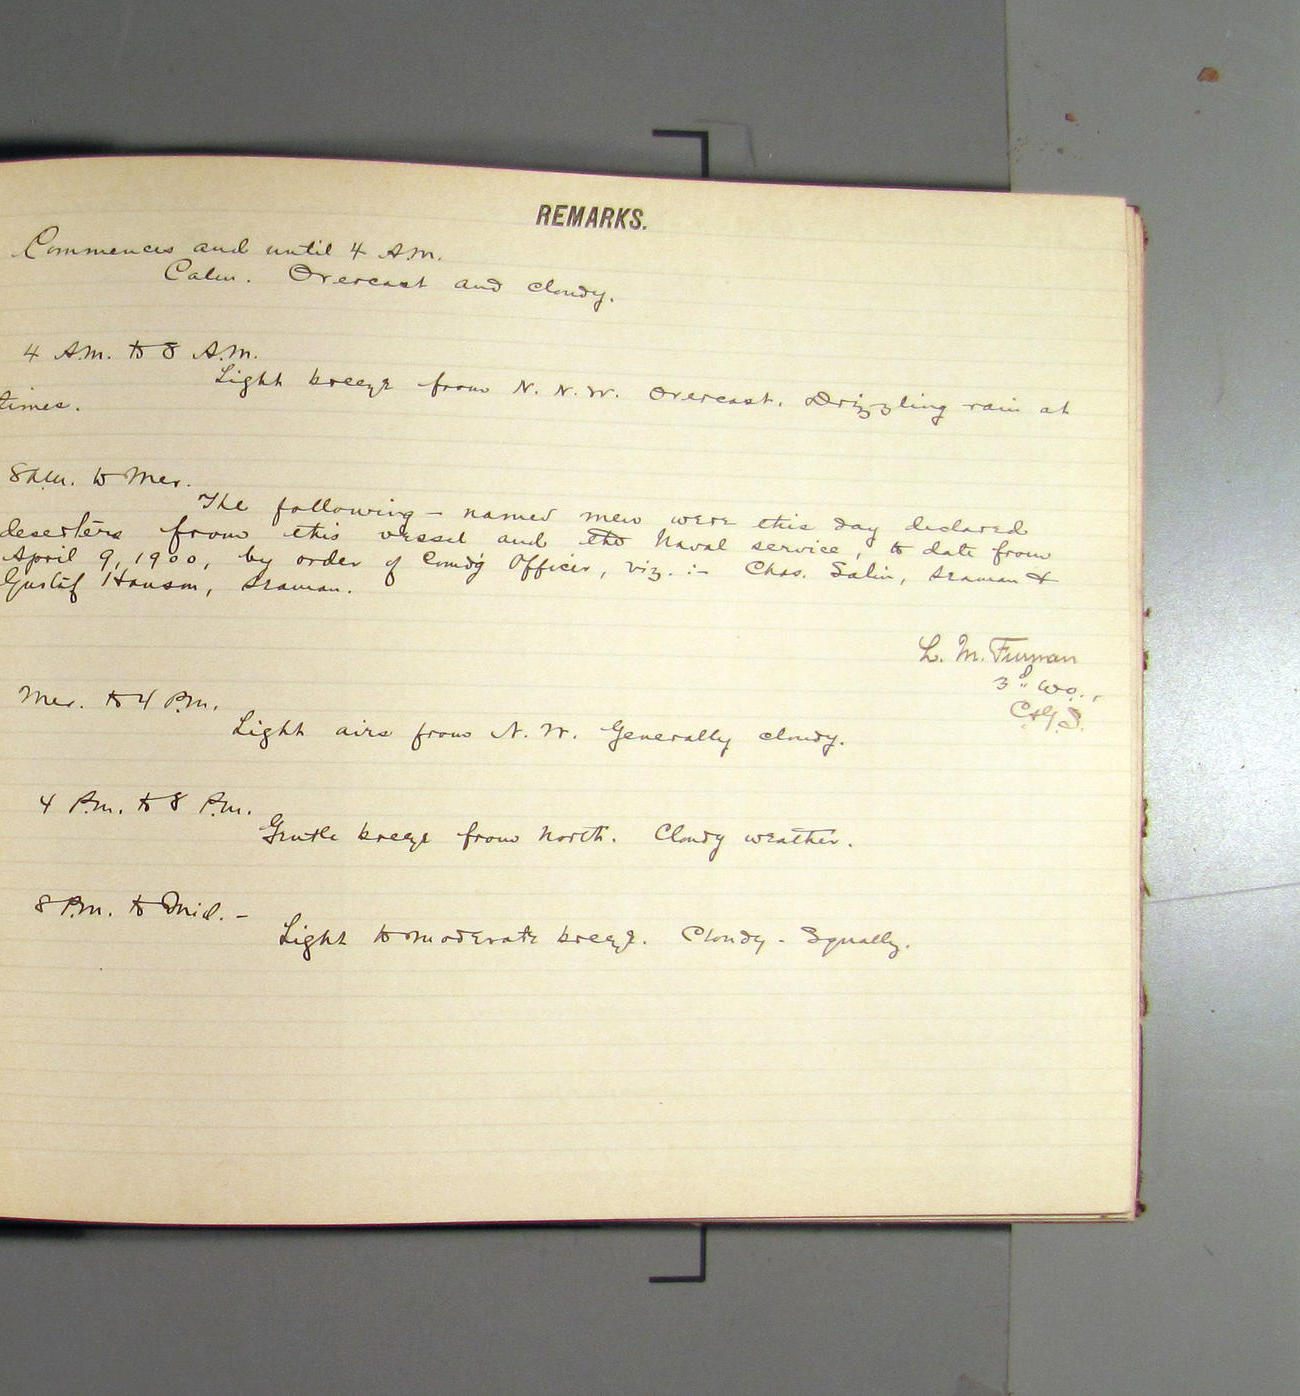 REMARKS.
Commences and until 4 A.M.
Calm. Overcast and cloudy.
4 A.M. to 8 A.M.
Light breeze from N. N. W. Overcast. Drizzling rain at
times.
8 A.M. to Mer.
The following-named men were this day declared
deserters from this vessel and the Naval service, to date from
April 9, 1900, by order of Comd'g Officer, viz. :- Chas. Salin, seaman &
Gustif Hanson, seaman.
L. M. Furman
3d Wo.,
C.&G.S.
Mer. to 4 P.M.
Light airs from N. W. Generally cloudy.
4 P.M. to 8 P.M.
Gentle breeze from North. Cloudy weather.
8 P.M. to Mid. -
Light to moderate breeze. Cloudy - Squally.